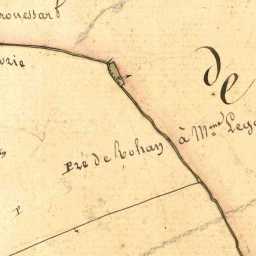 rouessard
orie
de
Pré de Rohan à Mme Le
P